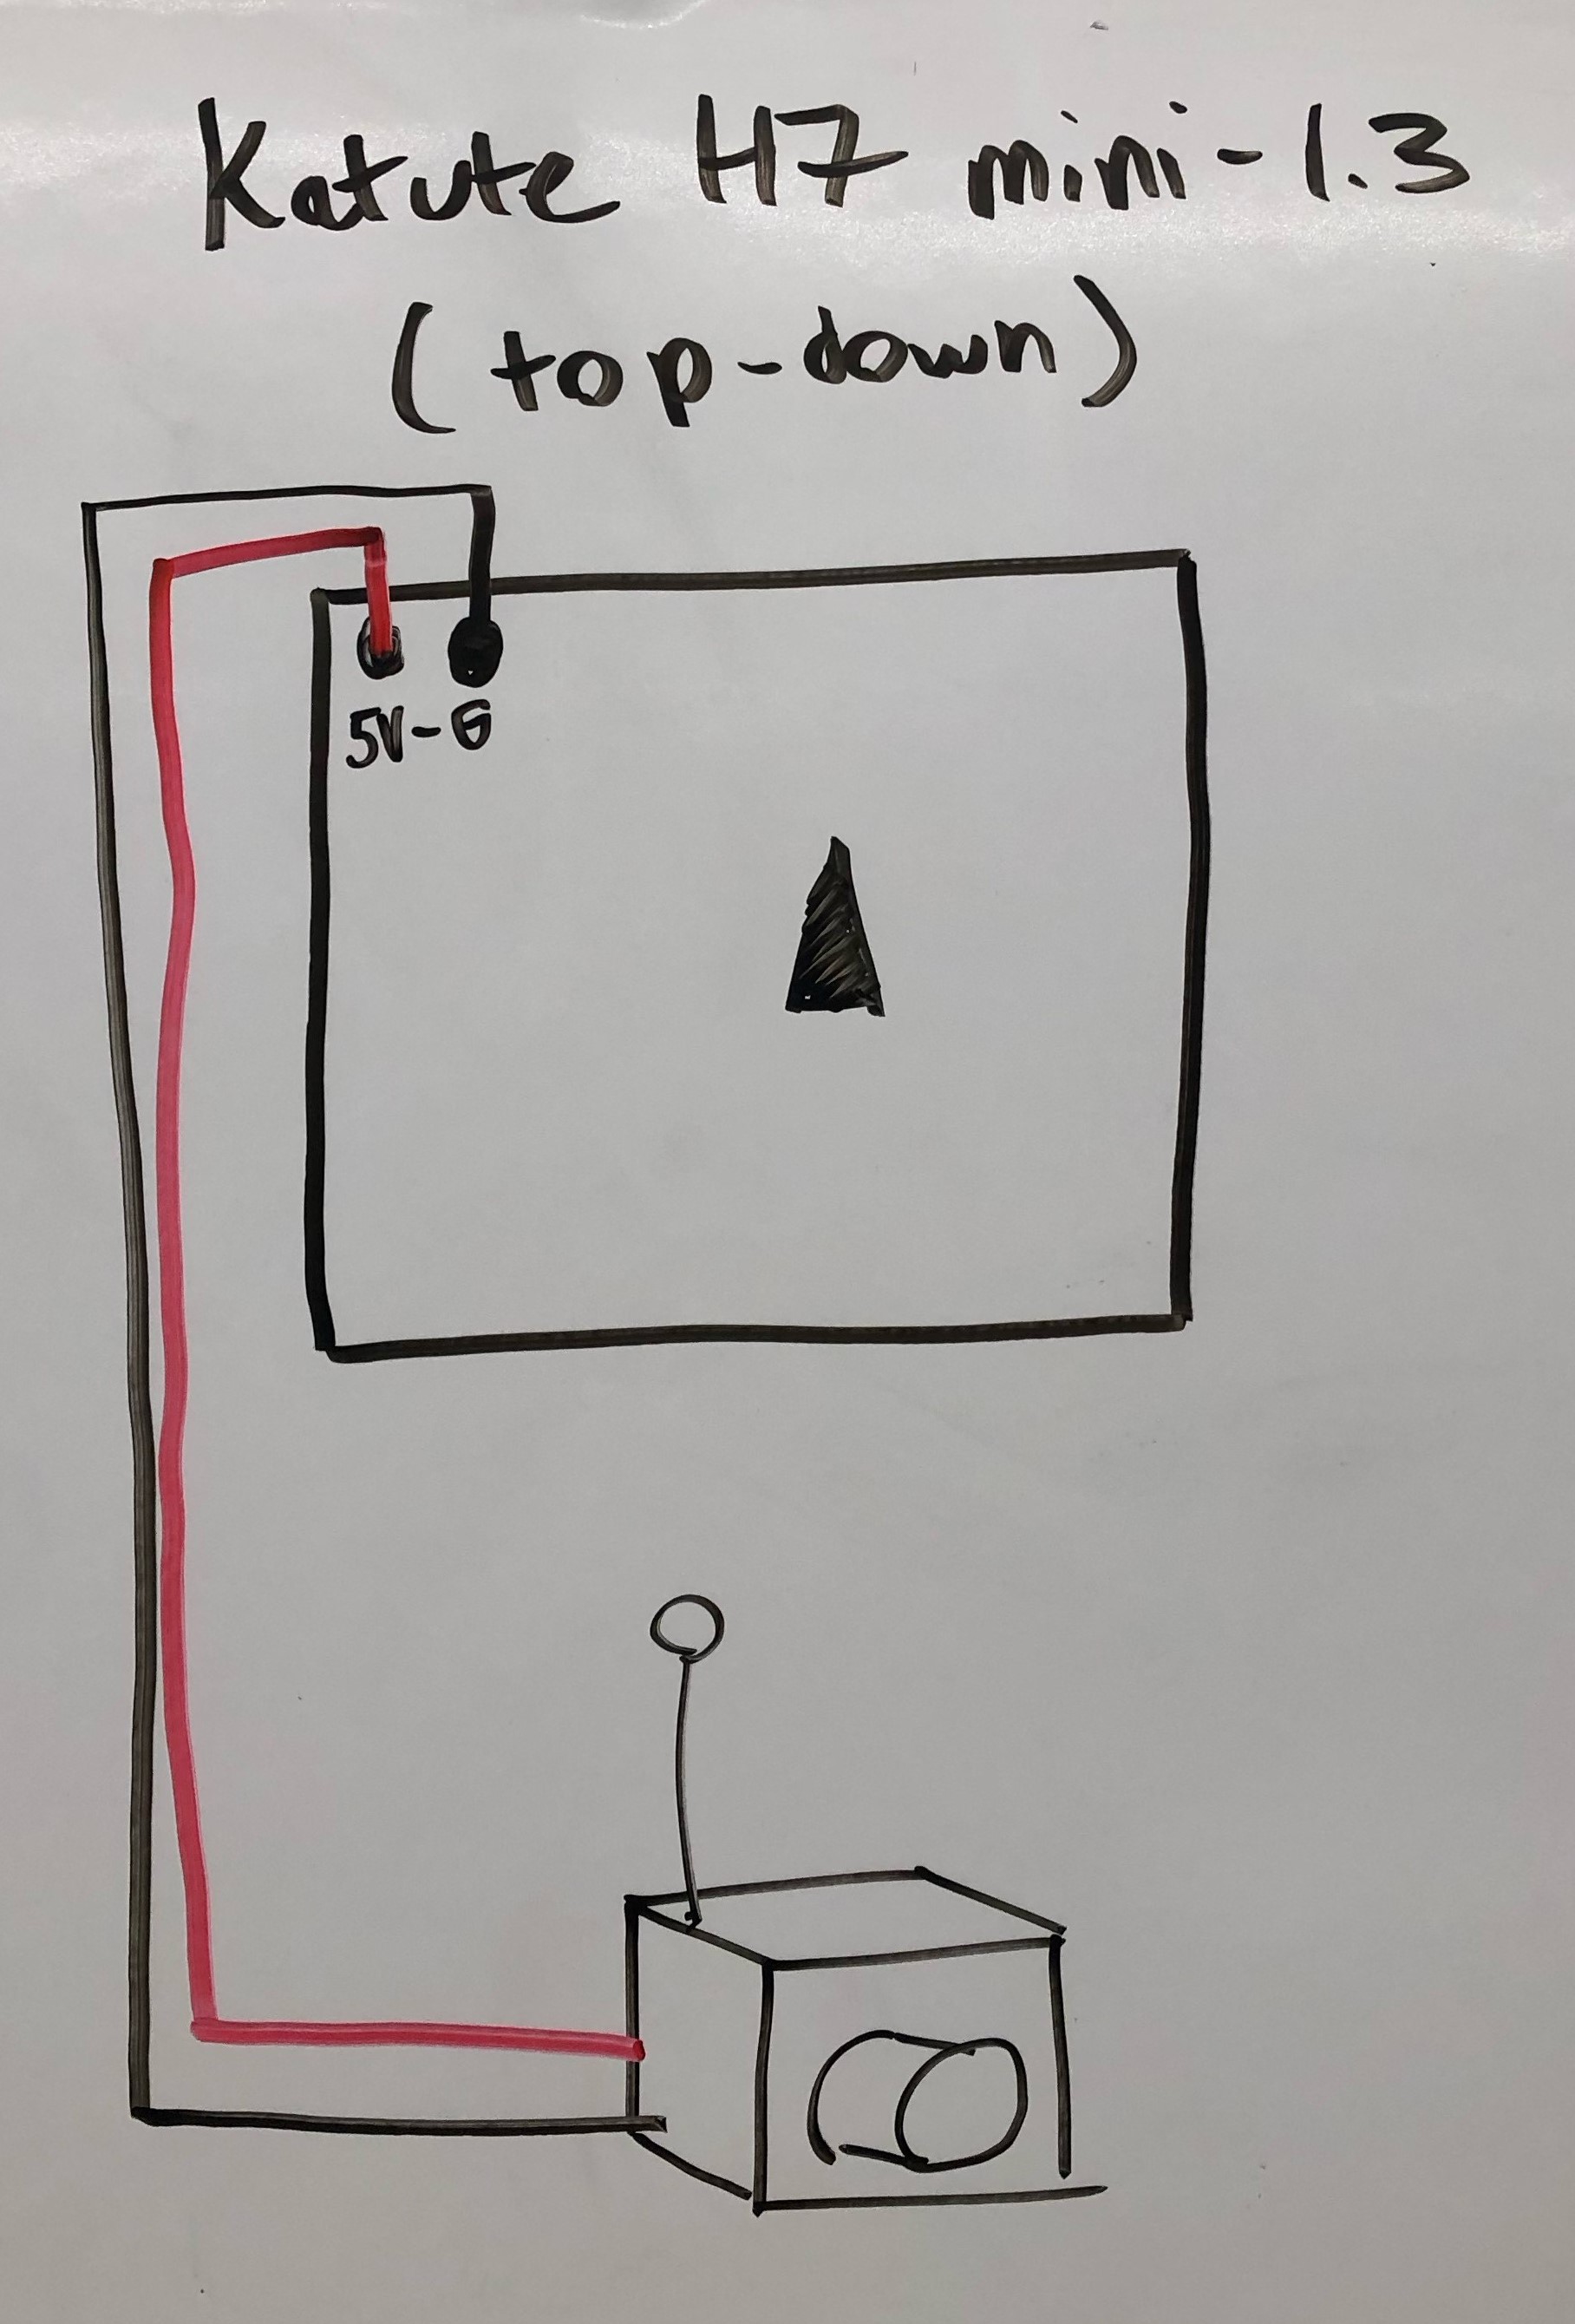 Katute H7 mini-1.3
(top-down)
5V-G